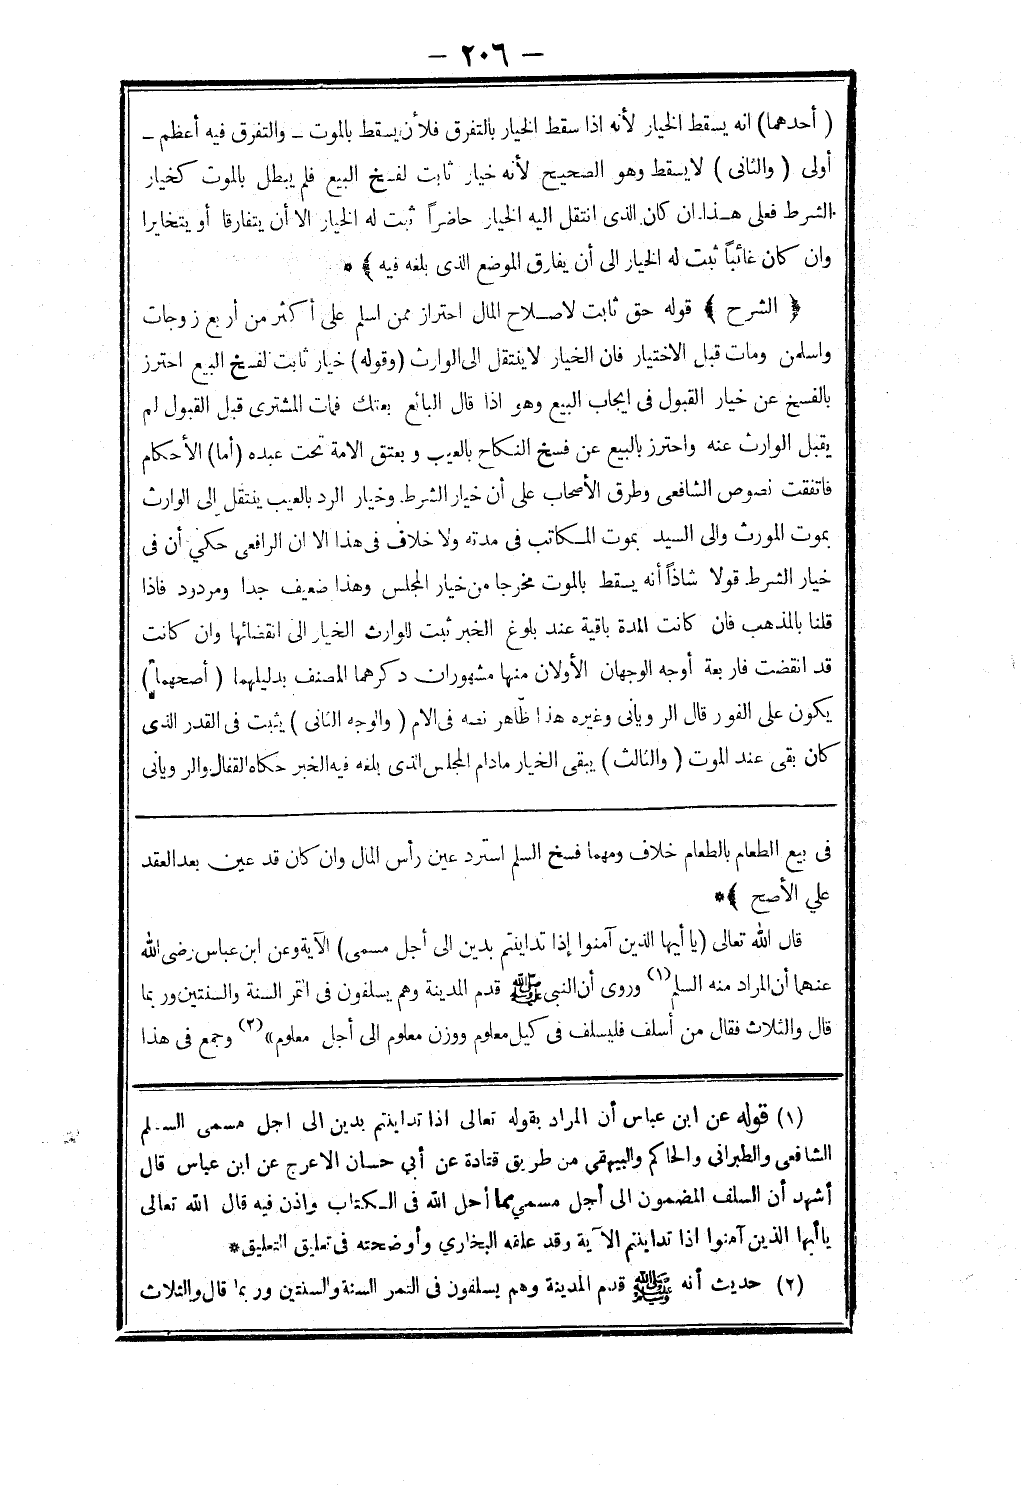 — ٢٠٦ —
( أحدهما) انه يسقط الخيار لأنه اذا سقط الخيار بالتفرق فلأن يسقط بالموت – والتفرق فيه أعظم –
أولى ( والثانى ) لا يسقط وهو الصحيح لأنه خيار ثابت لفسخ البيع فلم يبطل بالموت كخيار
الشرط فعلى هذا ان كان الذى انتقل اليه الخيار حاضراً ثبت له الخيار الا أن يتفارقا أو يتخايرا
وان كان غائباً ثبت له الخيار الى أن يفارق الموضع الذى بلغه فيه ﴾ *
﴿ الشرح ﴾ قوله حق ثابت لاصلاح المال احتراز ممن اسلم على أكثر من أربع زوجات
واسلمن ومات قبل الاختيار فان الخيار لا ينتقل الى الوارث (وقوله) خيار ثابت لفسخ البيع احترز
بالفسخ عن خيار القبول فى ايجاب البيع وهو اذا قال البائع بعتك فمات المشترى قبل القبول لم
يقبل الوارث عنه واحترز بالبيع عن فسخ النكاح بالعيب و بعتق الامة تحت عبده (أما) الأحكام
فاتفقت نصوص الشافعى وطرق الأصحاب على أن خيار الشرط وخيار الرد بالعيب ينتقل إلى الوارث
بموت المورث والى السيد بموت المكاتب فى مدته ولا خلاف فى هذا الا ان الرافعى حكي أن فى
خيار الشرط قولا شاذاً أنه يسقط بالموت مخرجا من خيار المجلس وهذا ضعيف جدا ومردرد فاذا
قلنا بالمذهب فان كانت المدة باقية عند بلوغ الخبر ثبت للوارث الخيار الى انقضائها وان كانت
قد انقضت فاربعة أوجه الوجهان الأولان منها مشهوران ذكرهما المصنف بدليلهما ( أصحهما )
يكون على الفور قال الرويانى وغيره هذا ظاهر نصه فى الام ( والوجه الثانى ) يثبت فى القدر الذى
كان بقى عند الموت ( والثالث ) يبقى الخيار مادام المجلس الذى بلغه فيه الخبر حكاه القفال والرويانى
فى بيع الطعام بالطعام خلاف ومهما فسخ السلم استرد عين رأس المال وان كان قد عين بعد العقد
علي الأصح ﴾ *
قال الله تعالى (يا أيها الذين آمنوا إذا تداينتم بدين الى أجل مسمى) الآية وعن ابن عباس رضى الله
عنهما أن المراد منه السلم(١) وروى أن النبى ﷺ قدم المدينة وهم يسلفون فى التمر السنة والسنتين وربما
قال والثلاث فقال من أسلف فليسلف فى كيل معلوم ووزن معلوم الى أجل معلوم»(٢) وجمع فى هذا
(١) قوله عن ابن عباس أن المراد بقوله تعالى اذا تداينتم بدين الى اجل مسمى السلم
الشافعى والطبرانى والحاكم والبيهقي من طريق قتادة عن أبي حسان الاعرج عن ابن عباس قال
أشهد أن السلف المضمون الى أجل مسمي مما أحل الله فى الكتاب واذن فيه قال الله تعالى
يا أيها الذين آمنوا اذا تداينتم الآية وقد علقه البخاري وأوضحته فى تعليق التعليق *
(٢) حديث أنه ﷺ قدم المدينة وهم يسلفون فى التمر السنة والسنتين وربما قال والثلاث